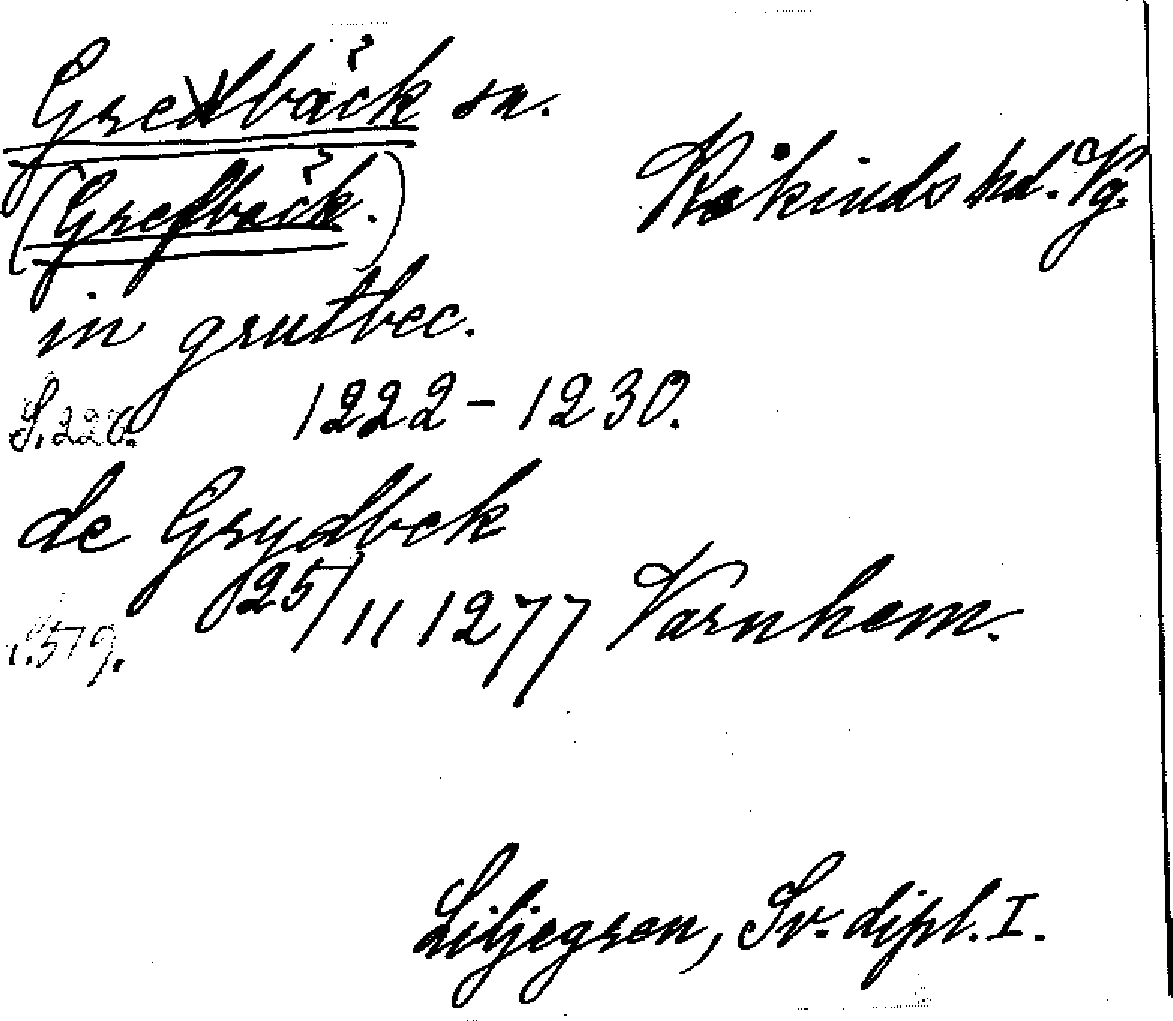 Gredbäck sn.
Kåkinds hd. Vg.
(Grefbäck.)
in grutbec.
S. 220. 1222-1230.
de Grydbek
S. 519. 25/11 1277 Varnhem.
Liljegren, Sv. dipl. I.